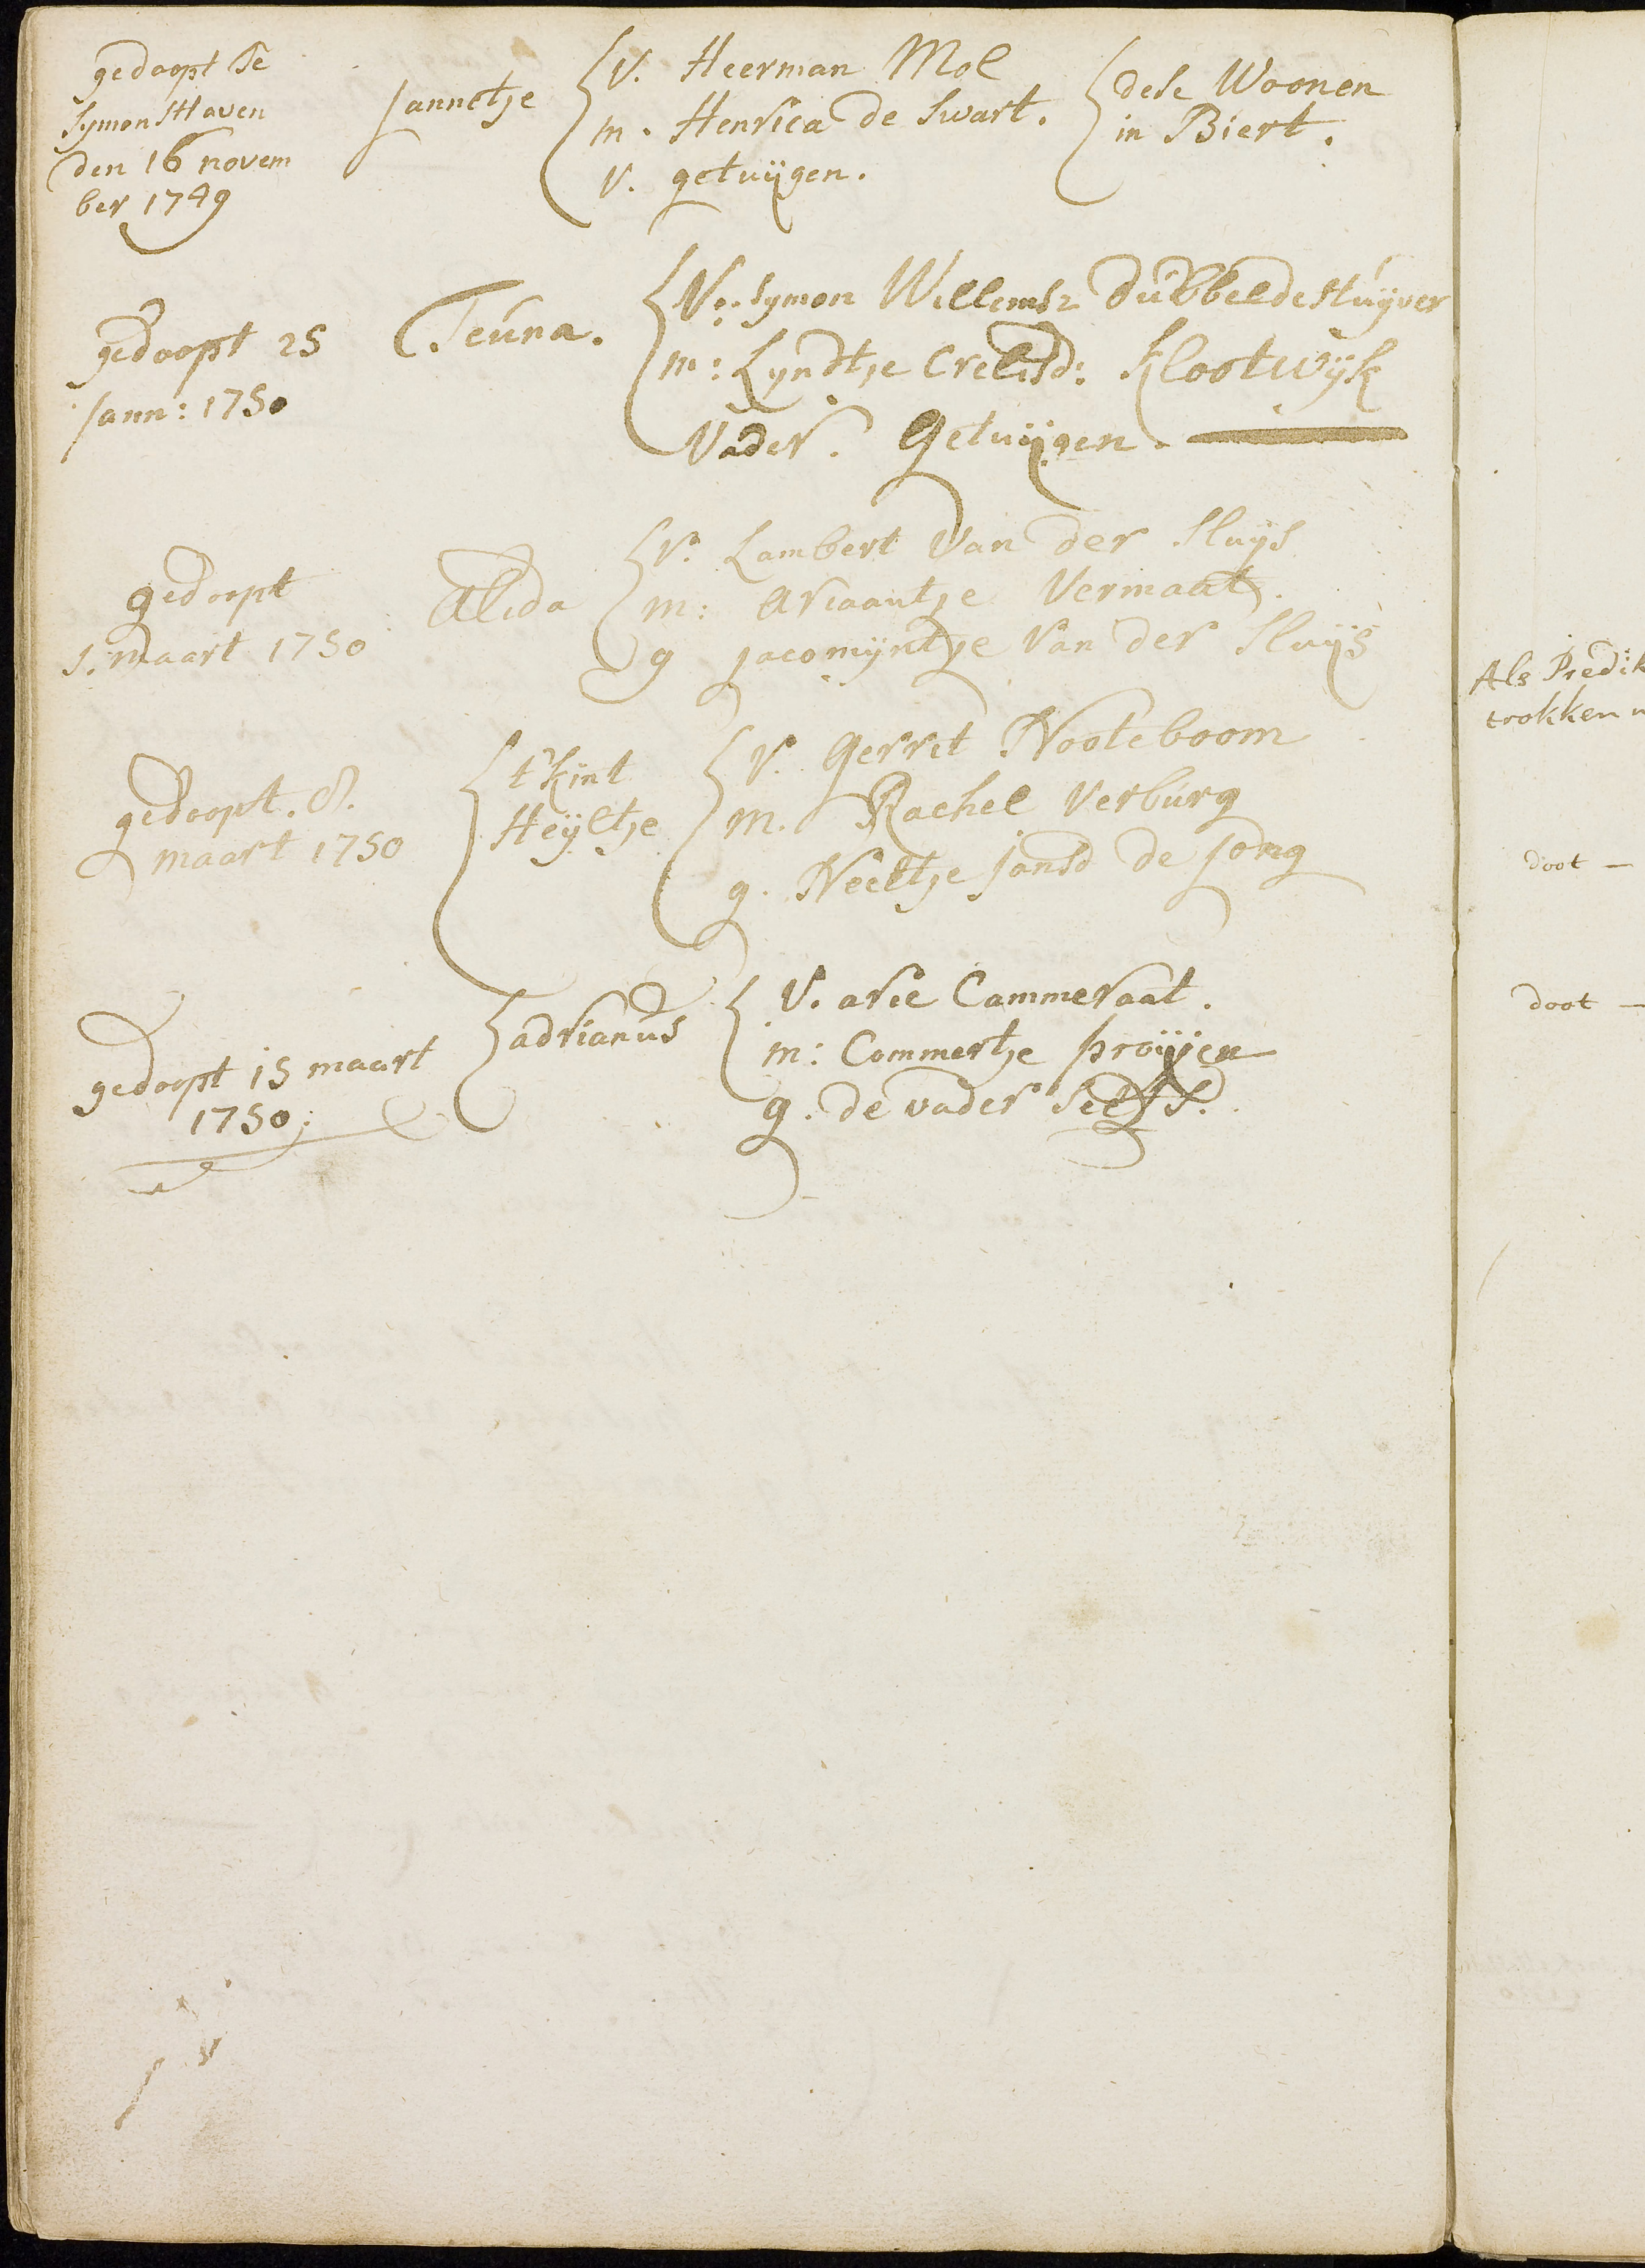 gedoopt Te
Symonshaven
den 16 novem
ber 1749
Jannetje
V. Heerman Mol
m. Henrica de Swart.
V. getuÿgen.
dese Woonen
in Biert.
gedoopt 25
Jann: 1750
Teuna.
V. Symon Willemsz Dubbeldestuÿver
m: Lyndtje Crelisd: Klootwÿk
Vader. Getuÿgen.
gedoopt
1. maart 1750
Alida
V. Lambert Van der Sluÿs
m: Ariaantje Vermaat.
g Jacomÿntje Van der Sluÿs
gedoopt. 8.
maart 1750
t'kint
Heÿltje
V. Gerret Nooteboom
m. Rachel Verburg
g. Neeltje Jansd de Jong
gedoopt 15 maart
1750:
adrianus
V. arie Cammeraat.
m: Commertje proÿen
g. de vader selfs.
Als Predik
trokken
doot —
doot —